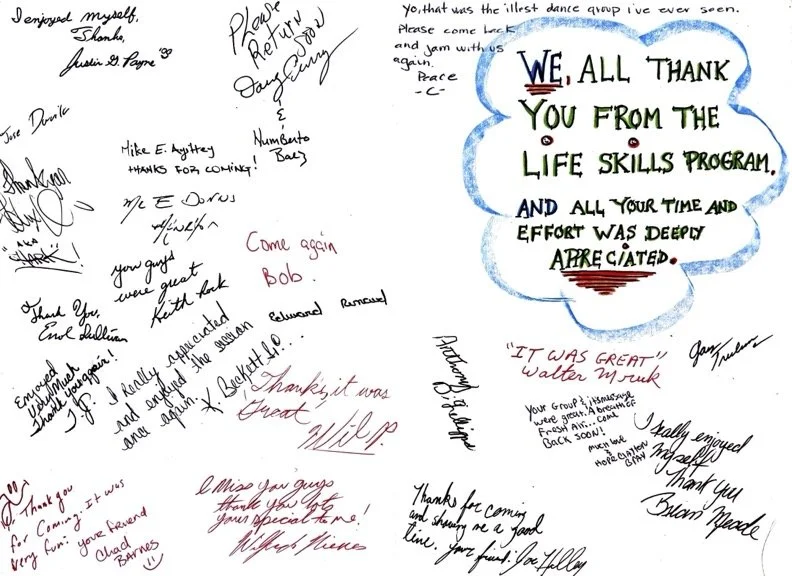 I enjoyed myself,
Thanks,
Justin G. Payne '99
Please
Return
Soon
Doug Curry
&
Numberto
Baez
Jose
Mike E. Agittey
THANKS FOR COMING!
Thank you
"AKA
SHARK"!
Mc E
you guys
were great
Keith
Come again
Bob.
Thank You,
Errol Sullivan
Edward
Enjoyed
Very Much
Thank you again!
T.J.
I Really appreciated
and enjoyed the session
once again.
K. Beckett Sr...
Thanks, it was
Great
Wil P.
Thank you
for Coming. It was
very fun. your friend
Chad
BARNES
I Miss you guys
thank you lots
your special to me!
yo, that was the illest dance group i've ever seen.
Please come back
and jam with us
again.
Peace
-C-
WE, ALL THANK
YOU FROM THE
LIFE SKILLS PROGRAM.
AND ALL YOUR TIME AND
EFFORT WAS DEEPLY
APPRECIATED.
Anthony
D. Gillespie
"IT WAS GREAT"
Walter Mruk
Your Group & its message
were great. A breath of
Fresh Air... Come
BACK SOON!
much love
&
HOPE
I really enjoyed
myself
Thank you
Brian Meade
Thanks for coming
and showing me a good
time. your friend: Joe Holley